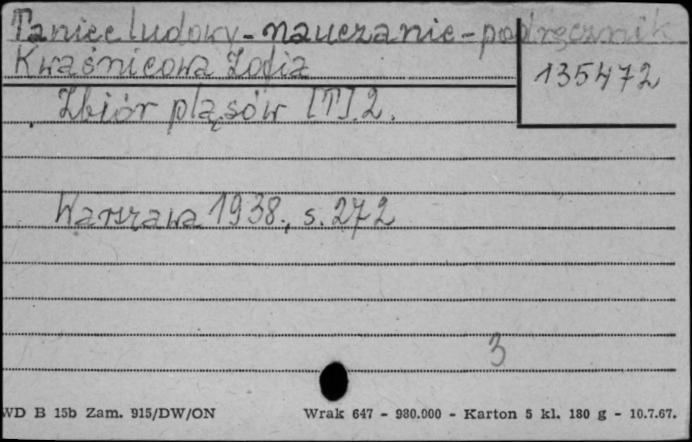 Taniec ludowy - nauczanie - podręcznik
Kwaśnicowa Zofia
135472
Zbiór pląsów [T]. 2.
Warszawa 1938., s. 272
3
WD B 15b Zam. 915/DW/ON Wrak 647 - 980.000 - Karton 5 kl. 180 g - 10.7.67.